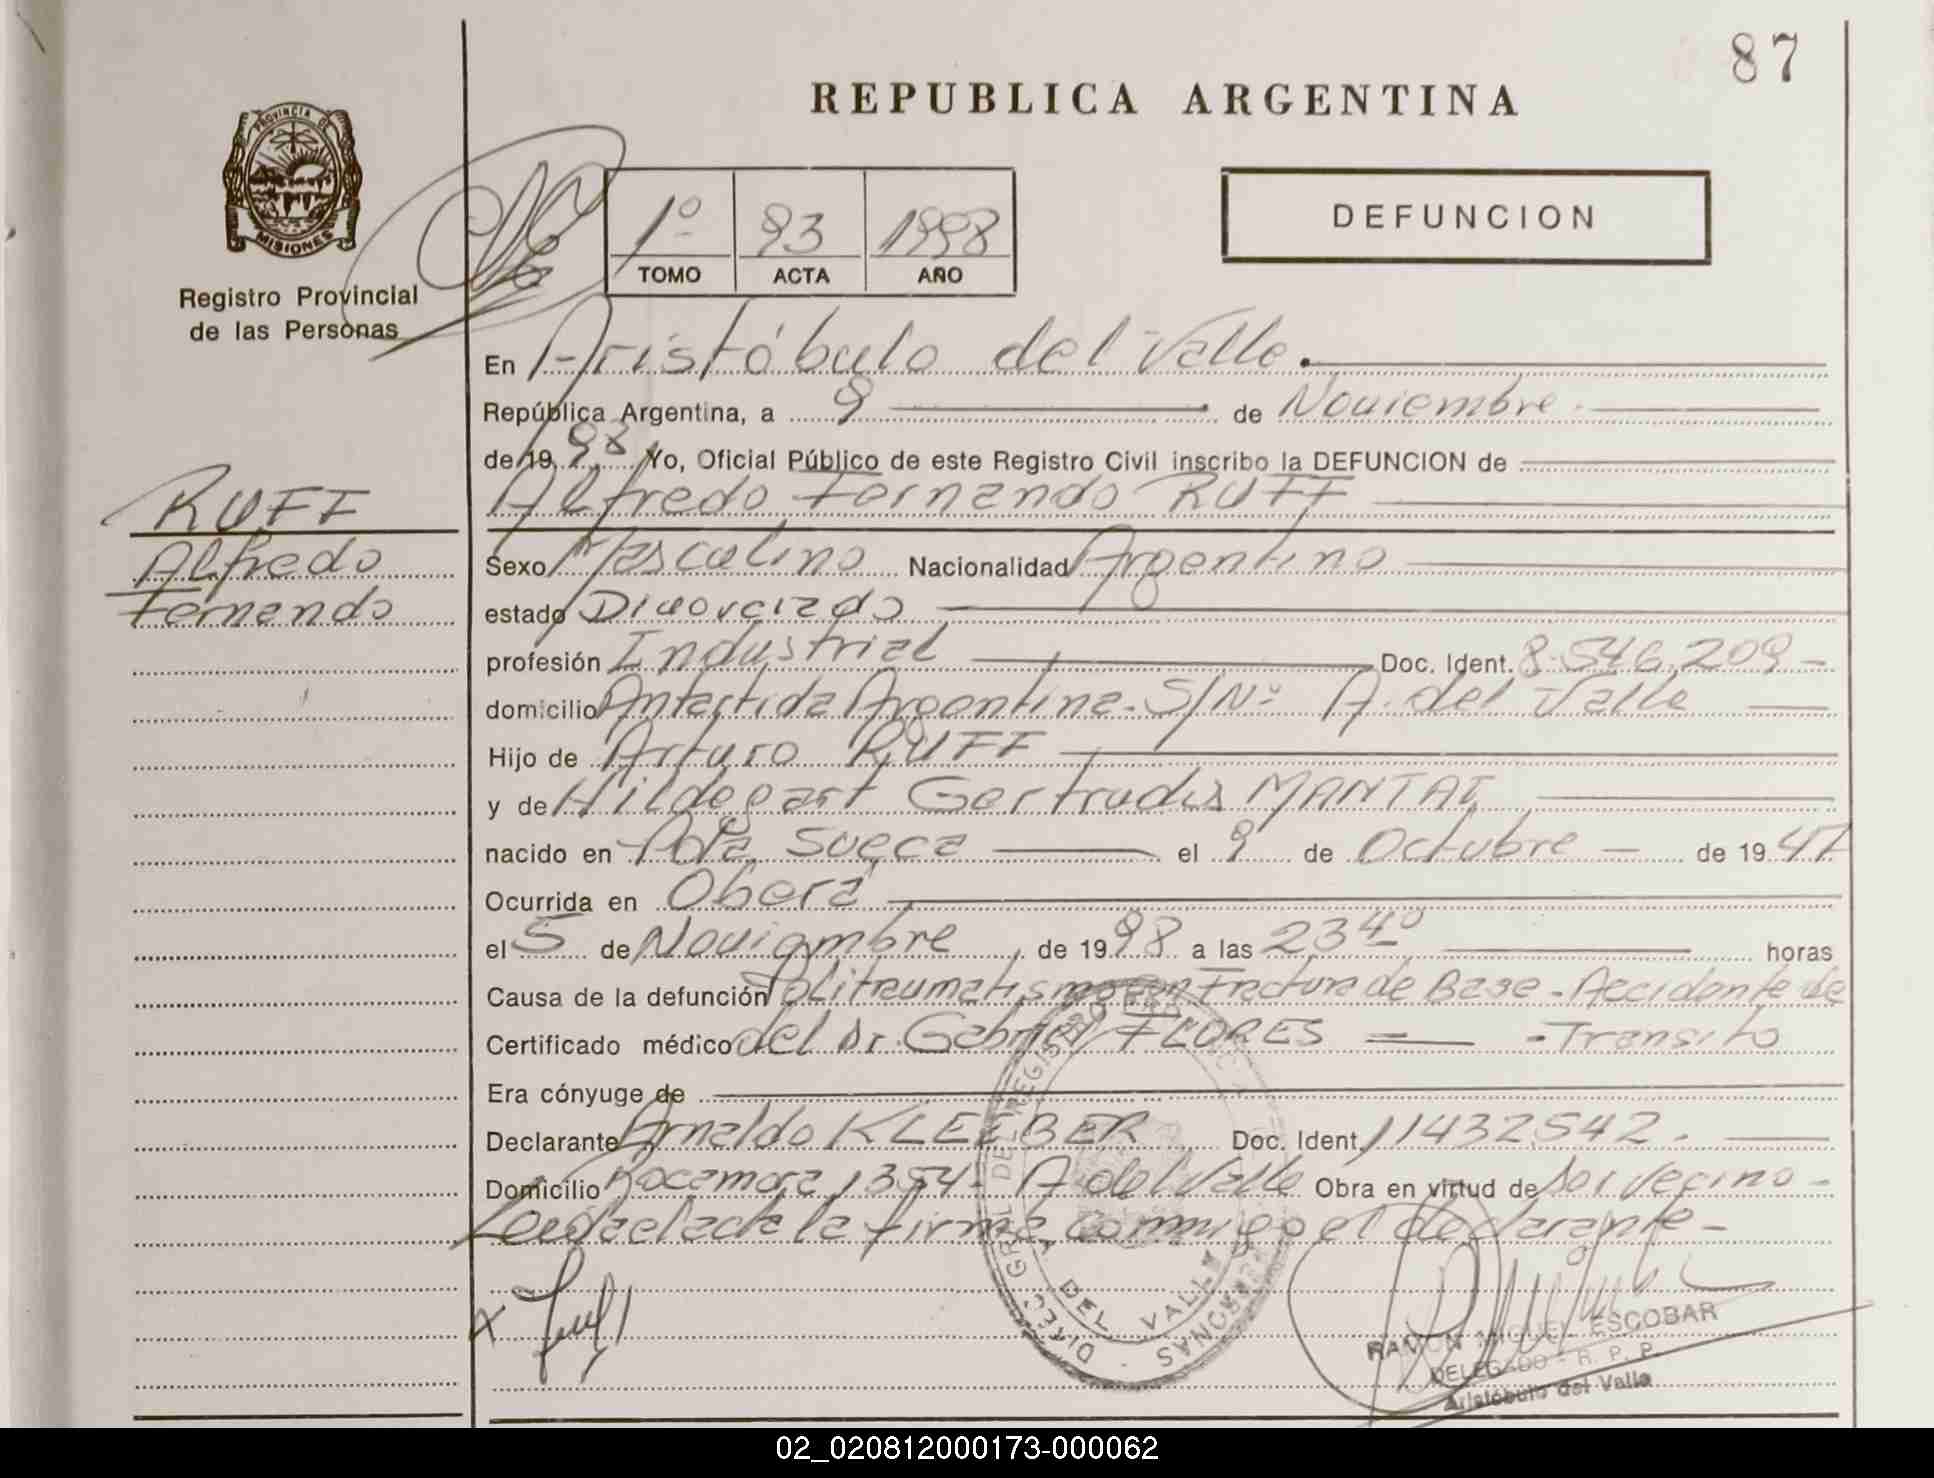 87
REPUBLICA ARGENTINA
PROVINCIA DE
MISIONES
Registro Provincial
de las Personas
1º 93 1998
TOMO ACTA AÑO
DEFUNCION
En Aristóbulo del Valle.
República Argentina, a 9 de Noviembre
de 19 98 Yo, Oficial Público de este Registro Civil inscribo la DEFUNCION de
Alfredo Fernando RUFF
RUFF
Alfredo
Fernando
Sexo Masculino Nacionalidad Argentino
estado Divorciado
profesión Industrial Doc. Ident. 8.546.209
domicilio Antartida Argentina - S/Nº A. del Valle
Hijo de Arturo RUFF
y de Hildegart Gertrudis MANTAI
nacido en Pcia. Sueca el 9 de Octubre de 19 47
Ocurrida en Oberá
el 5 de Noviembre de 19 98 a las 23 40 horas
Causa de la defunción Politraumatismo con Fractura de Base - Accidente de
Certificado médico del Dr. Gabriel FLORES - Transito
Era cónyuge de
Declarante Arnaldo KLEEBER Doc. Ident. 11432542.
Domicilio Rocamora 1354 - A del Valle Obra en virtud de Ser vecino -
Leida el acta la firma conmigo el declarante -
DIREC. GRAL. DEL REGISTRO
PERSONAS
A. DEL VALLE
RAMON MIGUEL ESCOBAR
DELEGADO - R. P. P.
Aristóbulo del Valle
02_020812000173-000062